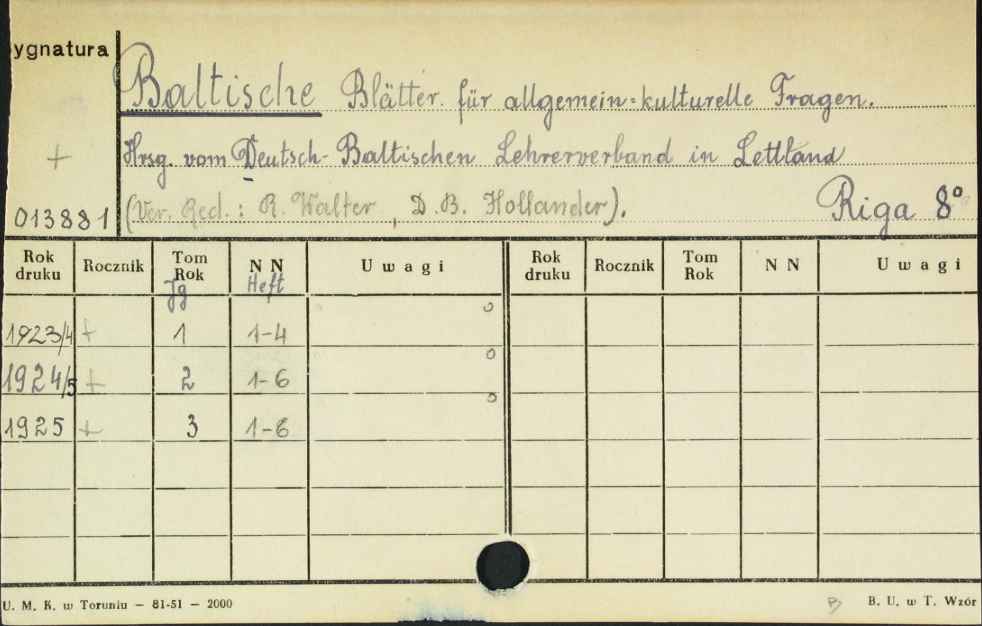 ygnatura
Baltische Blätter für allgemein=kulturelle Fragen.
+ Hrsg. vom Deutsch-Baltischen Lehrerverband in Lettland
013881 (Ver. Red.: R. Walter, D.B. Hollander). Riga 8°
Rok druku Rocznik Tom Rok N N Uwagi Rok druku Rocznik Tom Rok N N Uwagi
Jg Heft
1923/4 + 1 1-4
1924/5 + 2 1-6
1925 + 3 1-6
U. M. K. w Toruniu — 81-51 — 2000 B. U. w T. Wzór